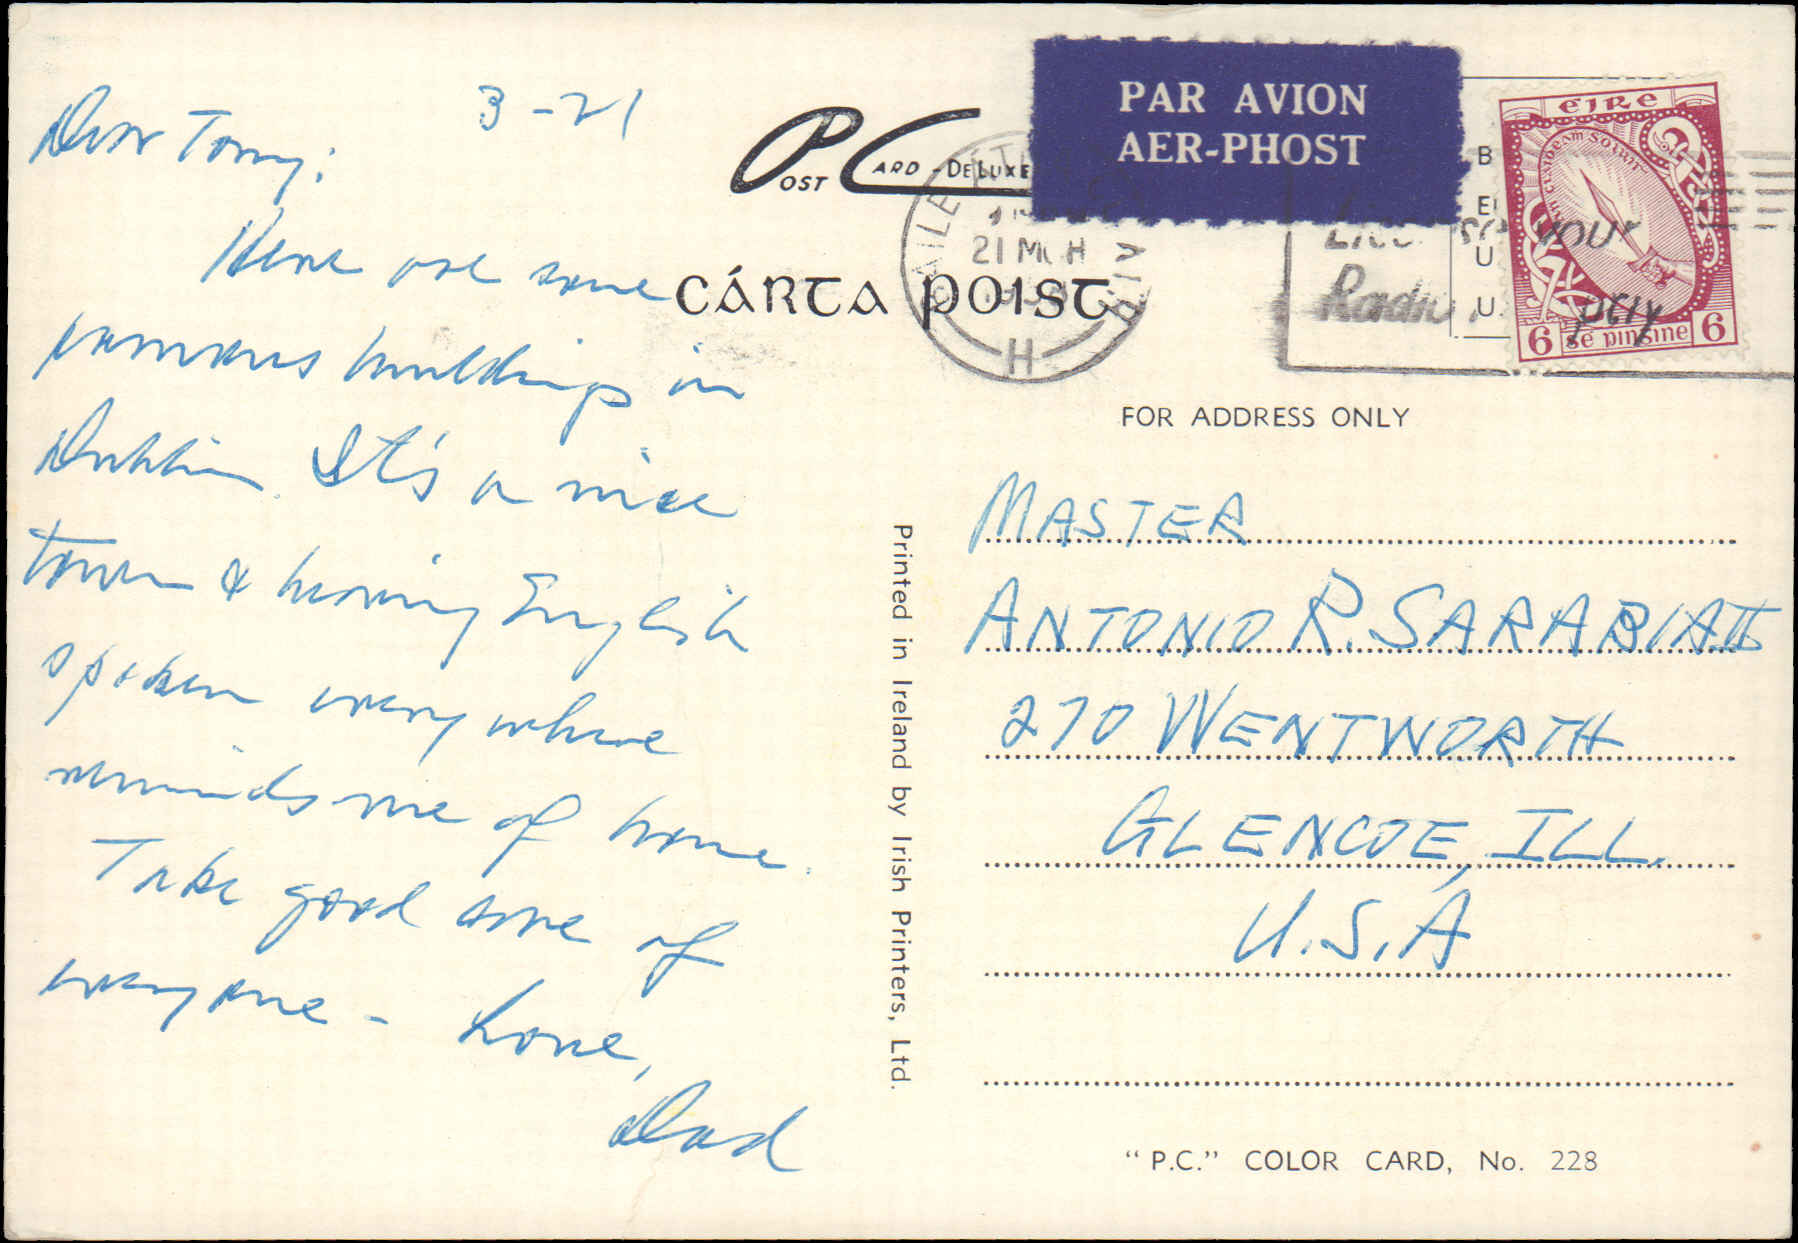 3-21
Dear Tony:
Here are some
famous buildings in
Dublin. It's a nice
town & hearing English
spoken everywhere
reminds me of home.
Take good care of
everyone - Love,
Dad
POST CARD - DE LUXE
CÁRTA POIST
PAR AVION
AER-PHOST
BAILE ÁTHA CLIATH
21 MCH
H
your
Radio
éire
AN CLAIDEAM SOLUIS
6 sé pingine 6
FOR ADDRESS ONLY
MASTER
ANTONIO R. SARABIA II
270 WENTWORTH
GLENCOE, ILL.
U.S.A
Printed in Ireland by Irish Printers, Ltd.
"P.C." COLOR CARD, No. 228